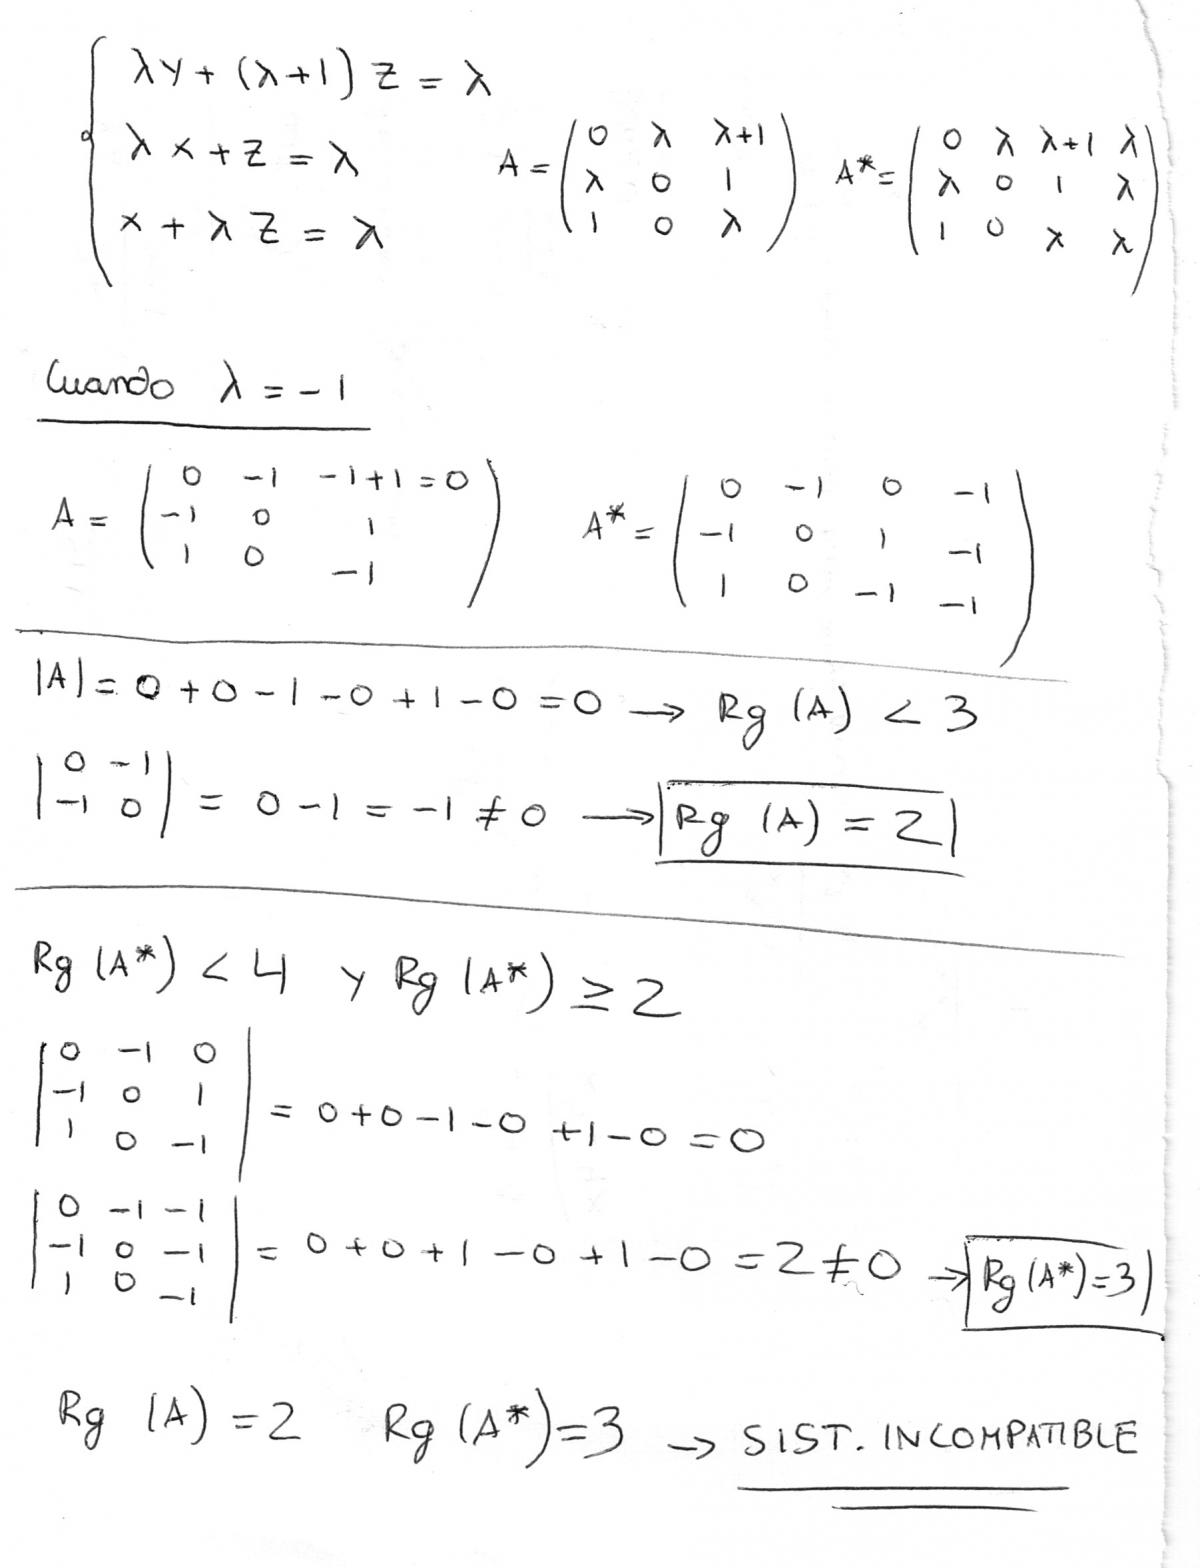 λy + (λ+1) z = λ
λx + z = λ
x + λz = λ
A = ( 0 λ λ+1
λ 0 1
1 0 λ )
A* = ( 0 λ λ+1 λ
λ 0 1 λ
1 0 λ λ )
Cuando λ = -1
A = ( 0 -1 -1+1=0
-1 0 1
1 0 -1 )
A* = ( 0 -1 0 -1
-1 0 1 -1
1 0 -1 -1 )
|A| = 0+0-1-0+1-0=0 → Rg (A) < 3
| 0 -1
-1 0 | = 0-1 = -1 ≠ 0 → Rg (A) = 2
Rg (A*) < 4 y Rg (A*) ≥ 2
| 0 -1 0
-1 0 1
1 0 -1 | = 0+0-1-0+1-0=0
| 0 -1 -1
-1 0 -1
1 0 -1 | = 0+0+1-0+1-0=2≠0 → Rg (A*)=3
Rg (A) = 2 Rg (A*)=3 → SIST. INCOMPATIBLE